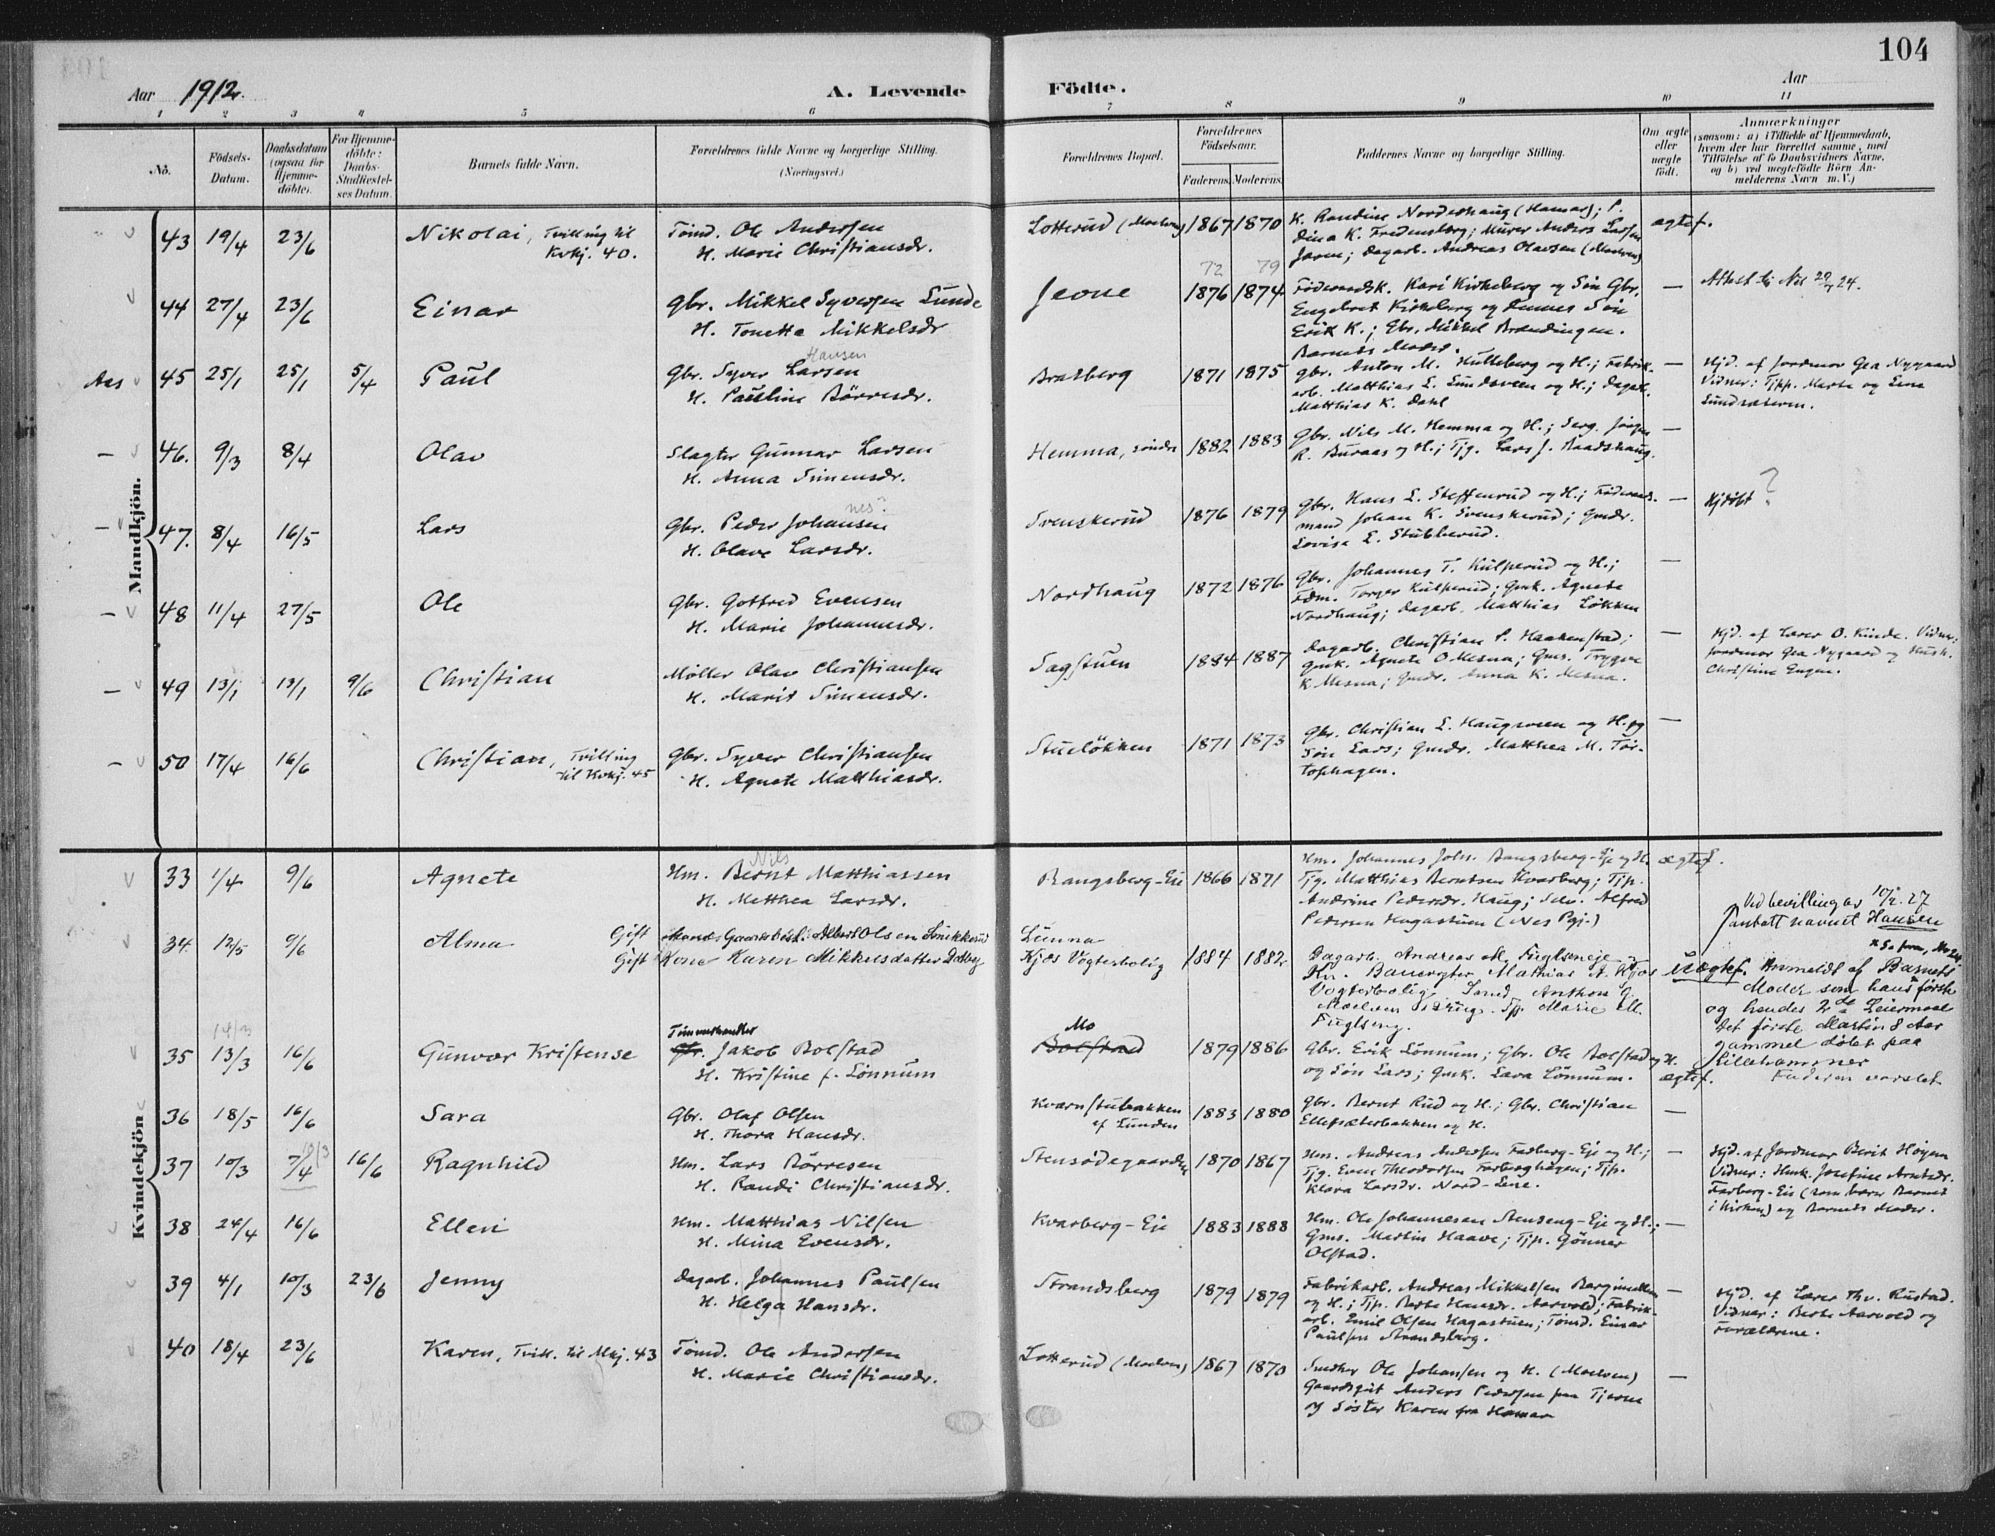 104
Aar 1912.
A. Levende Födte.
Aar
1 2 3 4 5 6 7 8 9 10 11
No.
Födsels-Datum.
Daabsdatum (ogsaa for Hjemmedöbte).
For Hjemmedöbte: Daabs-Stadfæstelses Datum.
Barnets fulde Navn.
Forældrenes fulde Navne og borgerlige Stilling. (Næringsvei.)
Forældrenes Bopæl.
Forældrenes Födselsaar.
Faderens. Moderens.
Faddernes Navne og borgerlige Stilling.
Om ægte eller uægte födt.
Anmærkninger
(saasom: a) i Tilfælde af Hjemmedaab, hvem der har forrettet samme, med Tilföielse af to Daabsvidners Navne, og b) ved uægtefödte Börn Anmelderens Navn m. V.)
Mandkjön.
43 19/4 23/6 Nikolai, Tvilling til Kvkj. 40.
Tömd. Ole Andersen
H. Marie Christiansdr.
Lotterud (Moelven) 1867 1870
K. Randine Nordeshaug (Hamar); P.
Dina K. Fredensberg; Murer Anders Larsen
Jaren; Dagarb. Andreas Olavsen (Moelven)
ægtef.
44 27/4 23/6 Einar
Gbr. Mikkel Syversen Lunde
H. Tonette Mikkelsdr
72 79
1876 1874
Föderaadsk. Kari Kirkeberg og Sön Gbr.
Engebret Kirkeberg og dennes Sön
Erik K.; Gbr. Mikkel Brændingen.
Barnets Moder.
—
Attest til Nes 29/4 24.
Aas 45 25/1 25/1 5/4 Paul
Hansen
Gbr. Syver Larsen
H. Pauline Börresdr.
Bratberg 1871 1875
Gbr. Anton M. Hulleberg og H.; Fabrik-
arb. Matthias L. Lundsveen og H.; Dagarb.
Matthias K. Dahl
—
Hjd. af Jordmor Gea Nygaard
Vidner: Tjp. Marte og Lina
Lundsæteren.
— 46. 9/3 8/4 Olav
Slagter Gunnar Larsen
H. Anna Simensdr.
Hemma, söndre 1882 1883
Gbr. Nils M. Hemma og H.; Serg. Jörgen
R. Buraas og H.; Tjg. Lars J. Raadshaug.
—
— 47. 8/4 16/5 Lars
nes?
Gbr. Peder Johansen
H. Olave Larsdr.
Svenskerud 1876 1879
Gbr. Hans L. Steffenrud og H.; Föderaads-
mand Johan K. Svenskerud; Gmdr.
Lovise L. Stubberud.
—
Hjdöbt ?
— 48 11/4 27/5 Ole
Gbr. Gotfred Evensen
H. Marie Johannesdr.
Nordhaug 1872 1876
Gbr. Johannes T. Kulperud og H.;
Fdm. Torger Kulperud; Gmk. Agnete
Nordhaug; Dagarb. Matthias Lökken
—
— 49 13/1 13/1 9/6 Christian
Möller Olav Christiansen
H. Marit Simensdr.
Sagstuen 1884 1887
Dagarb. Christian P. Haakenstad;
Gmk. Agnete O Mesna; Gms. Trygve
K Mesna; Gmdr. Anna K. Mesna.
—
Hjd. af Lærer O. Kinde. Vidner:
Jordmor Gea Nygaard og Hush.
Christine Engen.
— 50 17/4 16/6 Christian, Tvilling til Kvkj. 45
Gbr. Syver Christiansen
H. Agnete Matthiasdr.
Stuelökken 1871 1873
Gbr. Christian L. Haugsveen og H. og
Sön Lars; Gmdr. Matthea M. Tor-
tophagen.
—
Kvindekjön
33 1/4 9/6 Agnete
Nils
Hm. Bernt Matthiassen
H. Matthea Larsdr.
Bangsberg-Eie 1866 1871
Hm. Johannes Johs. Bangsberg-Eje og H.
Tjg. Matthias Berntsen Kvarberg; Tjp.
Andrine Pedersdr. Haug; Selv. Alfred
Pedersen Hagastuen (Nes Pgj.)
ægtef.
34. 12/5 9/6 Alma
Gift Mand Gaardsbest. Albert Olsen Snekkerud
Gift Kone Karen Mikkelsdatter Dolberg
Lunna
Kjos Vogterbolig 1884 1882
Dagarb. Andreas M. Fuglseneje og
Hu. Banevogter Mathias A. Kjos
Vogterbolig. Smed Anthon G.
Moelven Isbrug. Tjp. Marie M.
Fuglseng.
Uægtef.
Ved bevilling av 10/2. 27
antatt navnet Hansen
Anmeldt af Barnets
Moder som hans förste
og hendes 2de Leiermaal
det förste Martin 8 Aar
gammel döbt paa
Lillehammer
Faderen varslet
35 14/3 13/3 16/6 Gunvor Kristense
Tömmerhandler
Gbr. Jakob Bolstad
H. Kristine f. Lönnum
Mo
Bolstad 1879 1886
Gbr. Erik Lönnum; Gbr. Ole Bolstad og H.
og Sön Lars; Gmk. Lava Lönnum.
ægtef.
36 18/5 16/6 Sara
Gbr. Olaf Olsen
H. Thora Hansdr.
Kværnstubakken
af Lunden 1883 1880
Gbr. Bernt Rud og H.; Gbr. Christian
Ellefsæterbakken og H.
—
37 10/3 7/4 16/6 Ragnhild
Hm. Lars Börresen
H. Randi Christiansdr.
Stensödegaarden 1870 1867
Hm. Andreas Andersen Farberg-Eje og H.;
Tjg. Even Theodorsen Farberghagen; Tjp.
Klara Larsdr. Nord-Lene.
—
Hjd. af Jordmor Berit Höyen
Vidner: Hmk. Josefine Arntsdr.
Farberg-Eie (som bærer Barnet
i Kirken) og Barnets Moder.
38 24/4 16/6 Ellen
Hm. Matthias Nilsen
H. Mina Evensdr.
Kvarberg-Eje 1883 1888
Hm. Ole Johannesen Stenseng-Eje og H.;
Gms. Martin Haave; Tjp. Gönner
Olstad.
—
39 4/1 10/3 23/6 Jenny
Dagarb. Johannes Paulsen
H. Helga Hansdr.
Strandsberg 1879 1879
Fabrikarb. Andreas Mikkelsen Bergimellem
og H.; Tjp. Berte Hansdr. Aarvold; Fabrik-
arb. Emil Olsen Hagastuen; Tömd. Einar
Paulsen Strandsberg.
—
Hjd. af Lærer Thv. Rustad.
Vidner: Berte Aarvold og
Forældrene.
40 18/4 23/6 Karen, Tvill. til Mkj. 43
Tömd. Ole Andersen
H. Marie Christiansdr.
Lotterud (Moelven) 1867 1870
Snedker Ole Johansen og H. (Moelven)
Gaardsgut Anders Pedersen paa Tjerne
og Söster Karen fra Hamar
—